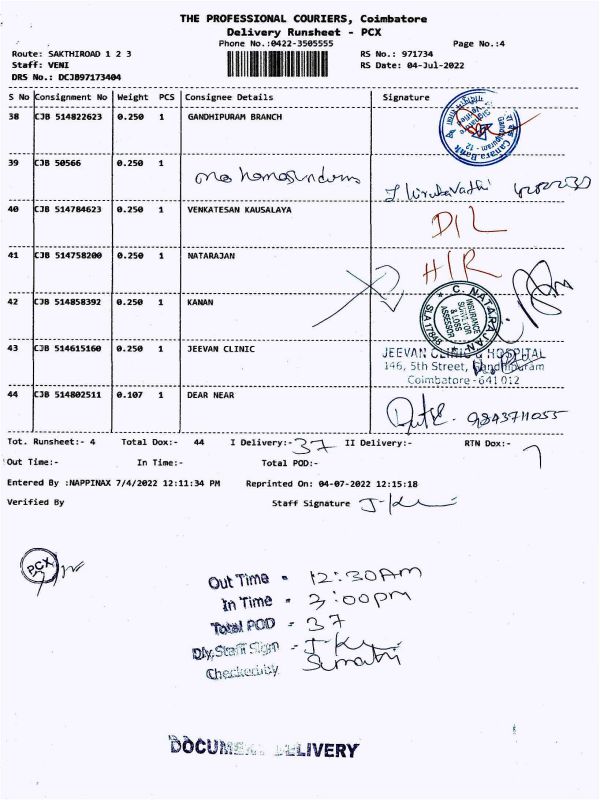 THE PROFESSIONAL COURIERS, Coimbatore
Delivery Runsheet - PCX
Phone No.:0422-3505555 Page No.:4
Route: SAKTHIROAD 1 2 3 RS No.: 971734
Staff: VENI RS Date: 04-Jul-2022
DRS No.: DCJB97173404
S No Consignment No Weight PCS Consignee Details Signature
38 CJB 514822623 0.250 1 GANDHIPURAM BRANCH
Canara Bank
39 CJB 50566 0.250 1
40 CJB 514784623 0.250 1 VENKATESAN KAUSALAYA D/L
41 CJB 514758200 0.250 1 NATARAJAN H/R
42 CJB 514858392 0.250 1 KANAN
C. NATARAJAN
INSURANCE
SURVEYOR
& LOSS
ASSESSOR
43 CJB 514615160 0.250 1 JEEVAN CLINIC JEEVAN CLINIC & HOSPITAL
146, 5th Street, Gandhipuram
Coimbatore - 641 012
44 CJB 514802511 0.107 1 DEAR NEAR 9843711055
Tot. Runsheet:- 4 Total Dox:- 44 I Delivery:- 37 II Delivery:- RTN Dox:- 7
Out Time:- In Time:- Total POD:-
Entered By :NAPPINAX 7/4/2022 12:11:34 PM Reprinted On: 04-07-2022 12:15:18
Verified By Staff Signature
PCX
Out Time - 12:30AM
In Time - 3:00pm
Total POD - 37
Dly.Staff Sign -
Checked by Sumathi
DOCUMENT DELIVERY